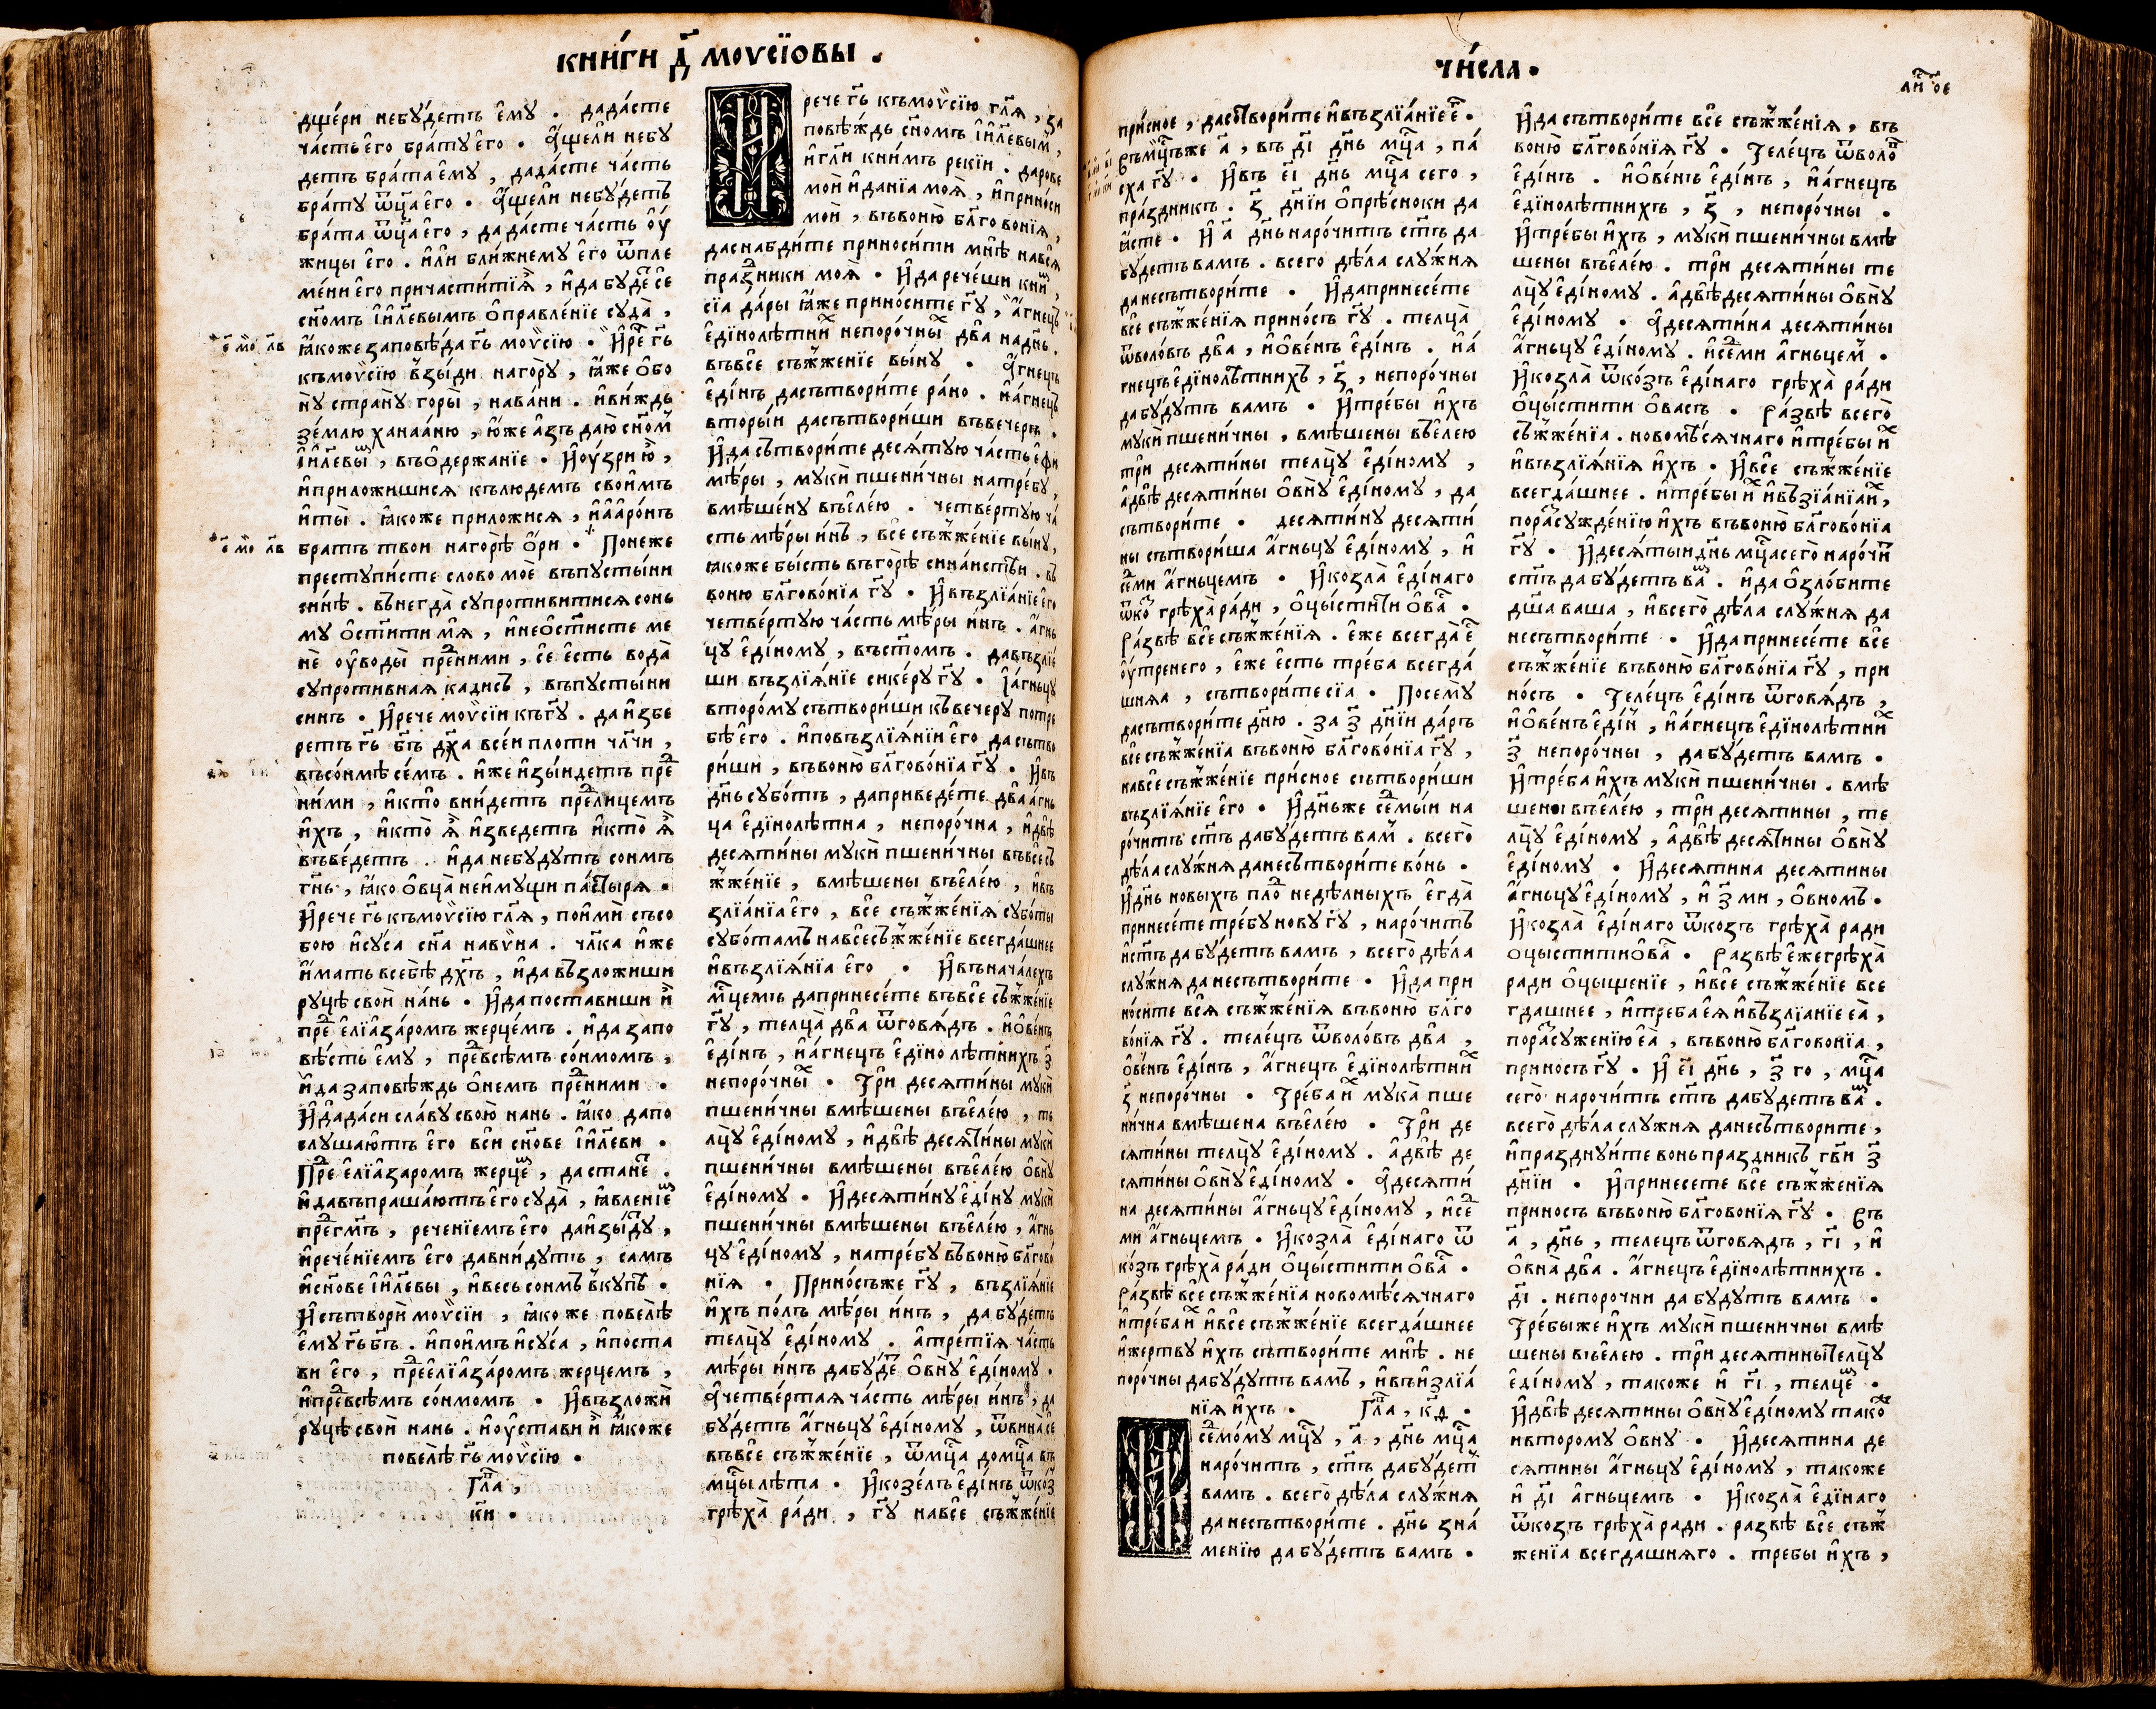 книги д҃ моѵсїовы .
дщери небудетъ ему . дадасте
часть его брату его . Ащели небу
детъ брата ему , дадасте часть
брату ѿца его . Ащели небудетъ
брата ѿца его , дадасте часть оу
жицы его . или ближнему его ѿпле
мени его причаститїѧ , идабуде се
сн҃омъ і҃илевымъ оправленїе суда ,
ꙗкоже заповѣда г҃ь моѵсїю . Ире г҃ь
къмоѵсїю взыди нагору , ꙗже обо
ну страну горы , навани . ивиждь
землю ханааню , юже азъ даю сн҃ом
і҃илевы , въодержанїе . Иоузри ю ,
иприложишися кълюдемъ своимъ
иты . ꙗкоже приложися , иааронъ
братъ твои нагорѣ ори . Понеже
преступисте слово мое въпустыни
синѣ . вънегда супротивитися сонь
му ост҃ити мя , инеост҃исте ме
не оуводы пре҃ними , се есть вода
супротивная кадисъ , въпустыни
синъ . Ирече моѵсіи къг҃у . да избе
ретъ г҃ь б҃ъ д҃ха всеи плоти ч҃лчи ,
въсоимѣ семъ . иже изыидетъ пре
ними , икто внидетъ пре҃лицемъ
ихъ , икто ѧ изведетъ икто ѧ
въведетъ . ида небудутъ соимъ
г҃нь , ꙗко овца неимущи пастыря .
Ирече г҃ь къмоѵсїю г҃ля , поими съсо
бою исуса с҃на навѵна . ч҃лка иже
имать всебѣ д҃хъ , ида възложиши
руцѣ свои нань . Ида поставиши и
пре еліазаромъ жерцемъ . ида запо
вѣсть ему , пре҃всѣмъ соимомъ ,
ида заповѣждь онемъ пре҃ними .
Идадаси славу свою нань . ꙗко дапо
слушаютъ его вси сн҃ове і҃илеви .
Пре еліазаромъ жерце , да стане .
идавъпрашаютъ его суда , ꙗвленіе
пре҃г҃мъ , реченіемъ его даизыду ,
иреченіемъ его давнидутъ , самъ
исн҃ове і҃илевы , ивесь соимъ вкупъ .
Исътвори моѵсіи , ꙗкоже повелѣ
ему г҃ьб҃ъ . ипоимъ исуса , ипоста
ви его , пре҃еліазаромъ жерцемъ ,
ипре҃всѣмъ соимомъ . Ивъзложи
руцѣ свои нань . иоустави и ꙗкоже
повелѣ г҃ь моѵсїю .
Гла ,
к҃и .
рече г҃ь къмоѵсїю г҃ля , за
повѣждь сн҃омъ і҃илевым ,
игли книмъ рекіи . дарове
мои иданїа моя , иприноси
мои , въвоню бл҃говонїя ,
даснабдите приносити мнѣ нався
праз҃ники моя . Ида речеши кни ,
сїа дары ꙗже приносите г҃у , агнецъ
едїнолѣтни непорочны два надн҃ь .
въвсе съжженїе выну . Агнецъ
едінъ дасътворите рано . иагнецъ
вторыи дасътвориши въвечеръ .
Ида сътворите десятую часть ефи
мѣры , муки пшеничны натребу ,
вмѣшену въелею . четвертую ча
сть мѣры инъ , все съжженіе выну ,
ꙗкоже бысть въгорѣ синаистѣи . въ
воню бл҃говонїа г҃у . Ивъзлїанїе его
четвертую часть мѣры инъ . агнь
цу едіному , въст҃омъ . давъзлїе
ши възліянїе сикеру г҃у . Іагньцу
второму сътвориши къвечеру потре
бѣ его . иповъзлїянїи его да сътво
риши , въвоню бл҃говонїа г҃у . Ивъ
дн҃ь суботъ , даприведете два агнь
ца едїнолѣтна , непорочна , идвѣ
десятины муки пшеничны въвсесъ
жженїе , вмѣшены въелею , ивъ
злїанїа его , все съжженїя суботы
суботамъ навсесъжженїе всегдашнее
ивъзліянїа его . Ивъначалехъ
м҃цемъ дапринесете въвсе съжженїе
г҃у , телца два ѿговядъ . иовенъ
едінъ , иагнецъ едїно лѣтнихъ з҃
непорочны . Три десятины муки
пшеничны вмѣшены въелею , те
лцу едіному , идвѣ десятины муки
пшеничны вмѣшены въелею овну
едіному . Идесятину едіну муки
пшеничны вмѣшены въелею , агнь
цу едіному , натребу въвоню бл҃гово
нїя . Приносъже г҃у , възлїянїе
ихъ полъ мѣры инъ , да будетъ
телцу едіному . атретїя часть
мѣры инъ дабуде овну едіному .
Ачетвертая часть мѣры инъ , да
будетъ агньцу едіному , ѿвина се
въвсе съжженїе , ѿм҃ца дом҃ца въ
м҃цы лѣта . Икозелъ едінъ ѿкоз
грѣха ради , г҃у навсе съжженїе
числа .
ли ое
присное , дасътворите ивъзлїанїе е .
Въм҃цъже а҃ , въ д҃і дн҃ь м҃ца , па
сха г҃у . Ивъ е҃і дн҃ь м҃ца сего ,
праздникъ . з҃ дн҃їи опрѣсноки да
ꙗсте . И а҃ дн҃ь нарочитъ ст҃ъ да
будетъ вамъ . всего дѣла служня
данесътворите . Идапринесете
все съжженїя приносъ г҃у . телца
ѿволовъ два , иовенъ едінъ . иа
гнецъ едїнолѣтнихъ , з҃ , непорочны
дабудутъ вамъ . Итребы ихъ
муки пшеничны , вмѣшены въелею
три десятины телцу едіному ,
адвѣ десятины овну едіному , да
сътворите . десятину десяти
ны сътвориша агньцу едіному , и
семи агньцемъ . Икозла едінаго
ѿко грѣха ради , оцыстити ова .
Развѣ все съжженїя . еже всегда е
оутренего , еже есть треба всегда
шняа , сътворите сїа . Посему
дасътворите дн҃ю . за з҃ дн҃їи даръ
все съжженїа въвоню бл҃говонїа г҃у ,
навсе съжженїе присное сътвориши
възлїянїе его . Идн҃ьже семыи на
рочитъ ст҃ъ дабудетъ вам . всего
дѣла служня данесътворите вонь .
Идн҃ь новыхъ пло недѣлныхъ егда
принесете требу нову г҃у , нарочитъ
ист҃ъ да будетъ вамъ , всего дѣла
служня да несътворите . Ида при
носите вся съжженїя въвоню бл҃го
вонїя г҃у . телецъ ѿволовъ два ,
овенъ едінъ , агнецъ едїнолѣтни
з҃ непорочны . Треба и мука пше
нична вмѣшена въелею . Три де
сятины телцу едіному . адвѣ де
сятины овну едіному . Адесяти
на десятины агньцу едіному , исе
ми агньцемъ . Икозла едінаго ѿ
козъ грѣха ради оцыстити ова .
Развѣ все съжженїа новомѣсячнаго
итреба и ивсе съжженїе всегдашнее
ижертву ихъ сътворите мнѣ . не
порочны дабудутъ вамъ , ивъизлїа
нїя ихъ . Гла , кд .
семому м҃цу , а҃ , дн҃ь м҃ца
нарочитъ , ст҃ъ дабудет
вамъ . всего дѣла служня
данесътворите . дн҃ь зна
менїю да будетъ вамъ .
Ида сътворите все съжженїя , въ
воню бл҃говонїя г҃у . Телецъ ѿволо
едінъ . иовенъ едінъ , иагнецъ
едїнолѣтнихъ , з҃ , непорочны .
Итребы ихъ , муки пшеничны вмѣ
шены въелею . три десятины те
лцу едіному . адвѣ десятины овну
едіному . Адесятина десятины
агньцу едіному . исеми агньцем .
Икозла ѿкозъ едінаго грѣха ради
оцыстити овасъ . Развѣ всего
съжженїа . новомѣсячнаго итребы и
ивъзлїянїя ихъ . Ивсе съжженїе
всегдашнее . итребы и ивъзїанїаи ,
порасужденїю ихъ въвоню бл҃говонїа
г҃у . Идесятыи дн҃ь м҃ца сего нарочи
ст҃ъ да будетъ ва . ида озлобите
дш҃а ваша , ивсего дѣла служня да
несътворите . Ида принесете все
съжженїе въвоню бл҃говонїа г҃у , при
носъ . Телецъ едінъ ѿговядъ ,
иовенъ едіи , иагнецъ едїнолѣтни
з҃ непорочны , да будетъ вамъ .
Итреба ихъ муки пшеничны . вмѣ
шены въелею , три десятины , те
лцу едіному , адвѣ десятины овну
едіному . Идесятина десятины
агньцу едіному , и з҃ ми , овномъ .
Икозла едінаго ѿкозъ грѣха ради
оцыститиова . Развѣ ежегрѣха
ради оцыщенїе , ивсе съжженїе все
гдашнее , итреба ея ивъзлїанїе еа ,
порасуженїю еа , въвоню бл҃говонїа ,
приносъ г҃у . И е҃і дн҃ь , з҃ го , м҃ца
сего нарочитъ ст҃ъ дабудетъ ва .
всего дѣла служня данесътворите ,
ипразднуите вонь праздникъ г҃ви з҃
дн҃їи . Ипринесете все съжженїя
приносъ въвоню бл҃говонїя г҃у . Въ
а҃ , дн҃ь , телецъ ѿговядъ , г҃і , и
овна два . агнецъ едїнолѣтнихъ .
д҃і . непорочни да будутъ вамъ .
Требыже ихъ муки пшеничны вмѣ
шены въелею . три десятины телцу
едіному , такоже и г҃і , телце .
Идвѣ десятины овну едіному тако
ивторому овну . Идесятина де
сятины агньцу едіному , такоже
и д҃і агньцемъ . Икозла едїнаго
ѿкозъ грѣха ради . развѣ все съж
женїа всегдашняго . требы ихъ ,